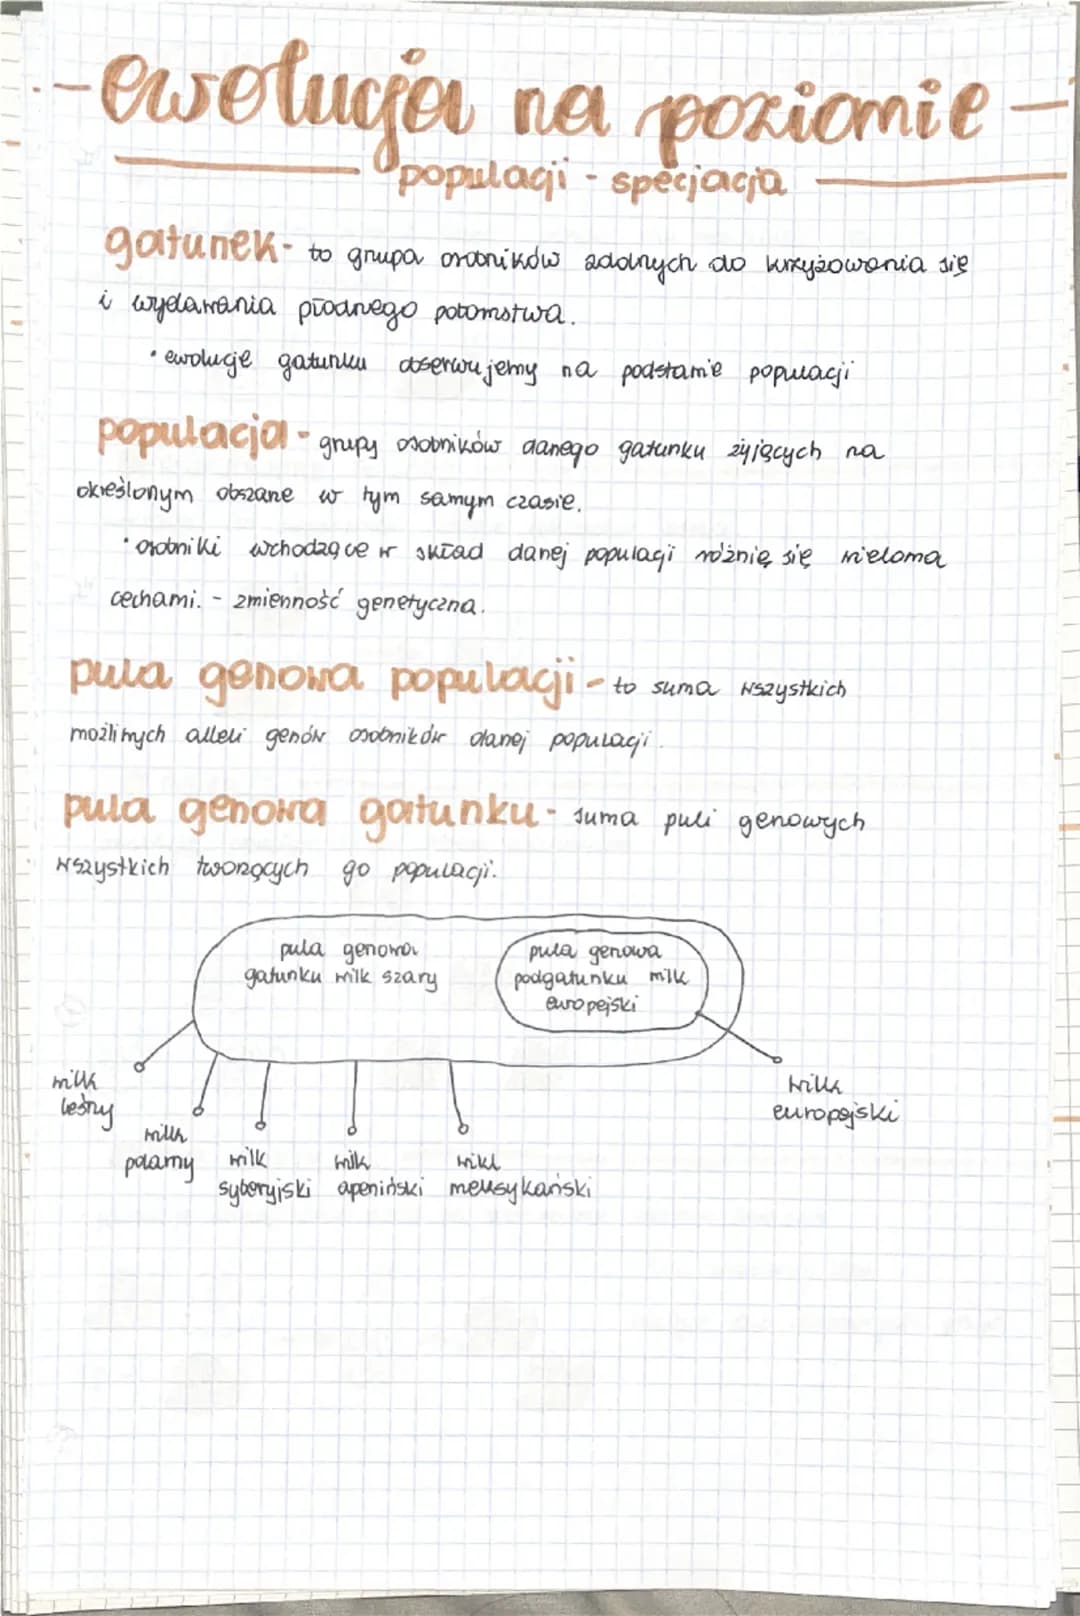 - ewolucja na poziomie -
populacji - specjacja
gatunek - to grupa osobników zdolnych do krzyżowania się
i wydawania płodnego potomstwa.
• ewolucje gatunku obserwujemy na podstawie populacji
populacja - grupy osobników danego gatunku żyjących na
określonym obszarze w tym samym czasie.
• osobniki wchodzące w skład danej populacji różnią się wieloma
cechami. - zmienność genetyczna.
pula genowa populacji - to suma wszystkich
możliwych alleli genów osobników danej populacji.
pula genowa gatunku - suma puli genowych
wszystkich tworzących go populacji.
pula genowa
gatunku wilk szary
pula genowa
podgatunku wilk
europejski
wilk
leśny
wilk
polarny
wilk
syberyjski
wilk
apeniński
wikl
meksykański
wilk
europejski